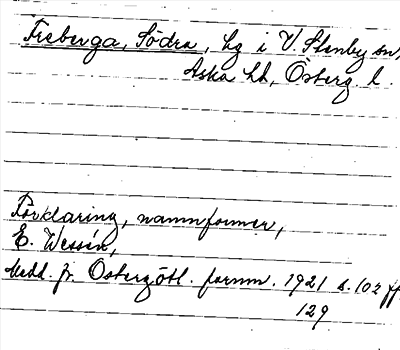 Freberga, Södra, hg i V. Stenby sn,
Aska hd, Österg. l.
Förklaring, namnformer,
E. Wessén,
Medd. fr. Östergötl. fornm. 1921 s. 102 ff,
129